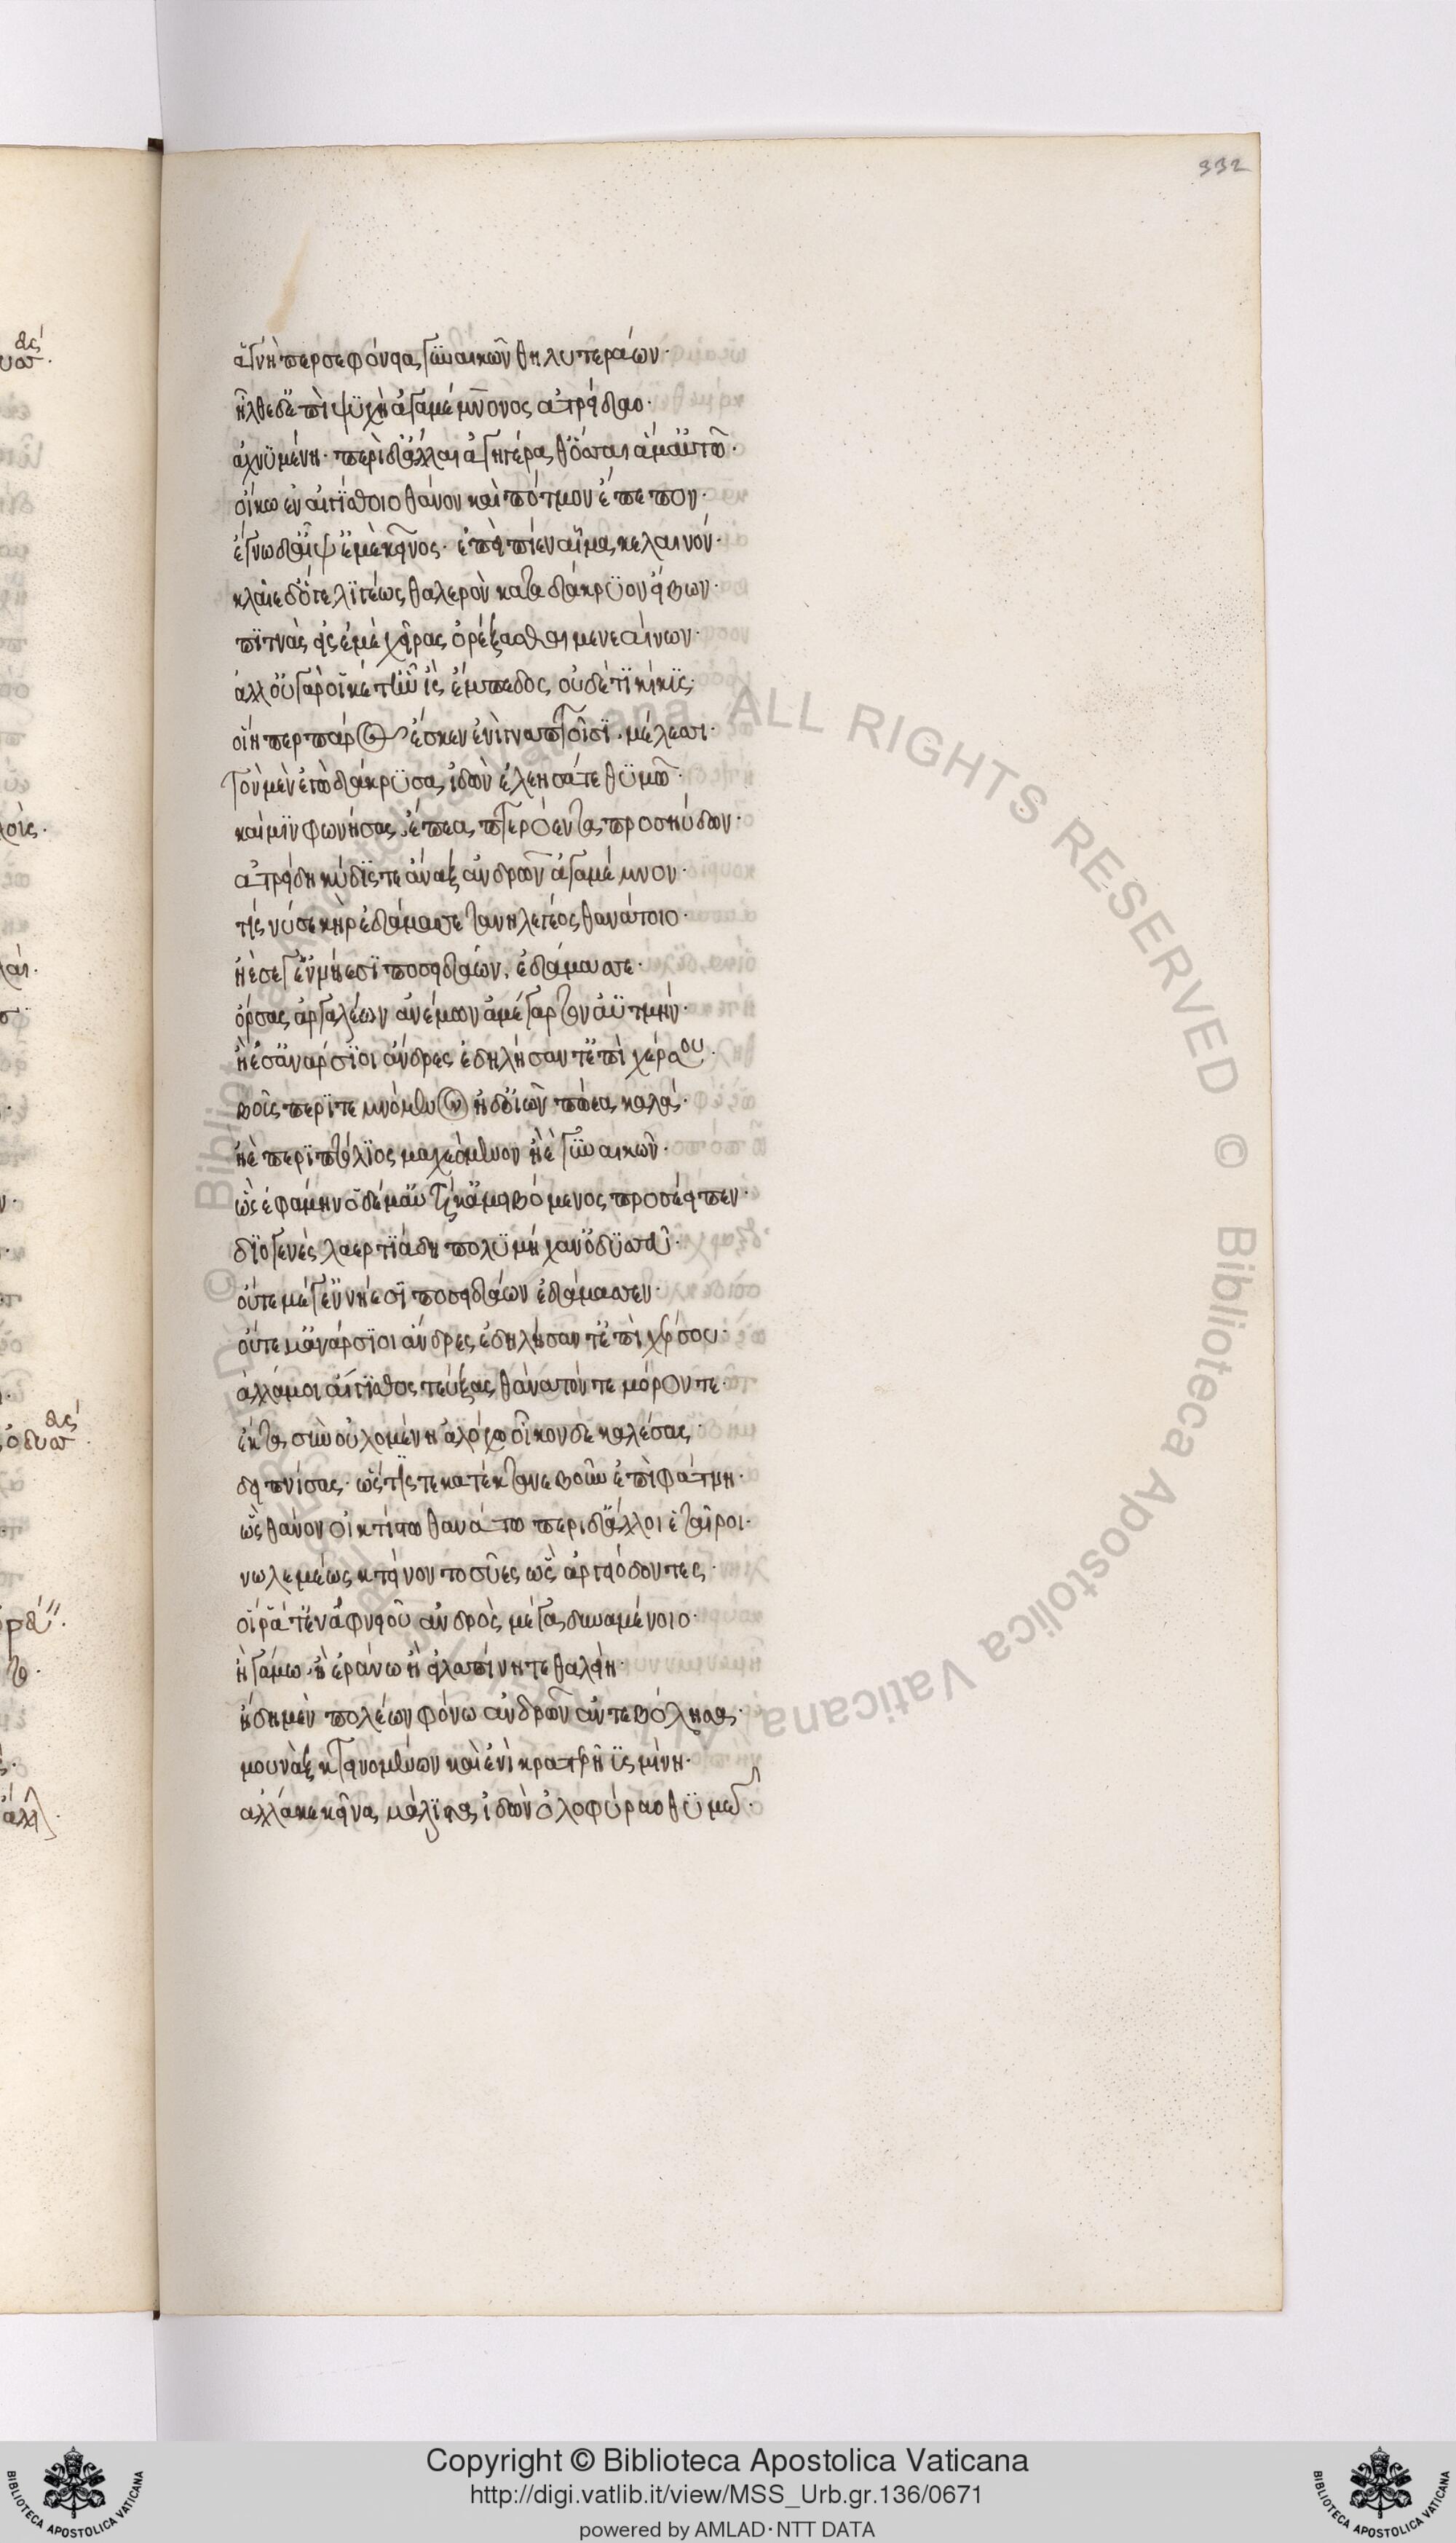 332
ἁγνὴ περσεφόνεια γυναικῶν θηλυτεράων·
ἦλθε δ' ἐπὶ ψυχὴ ἀγαμέμνονος ἀτρείδαο·
ἀχνυμένη· περὶ δ' ἄλλαι ἀγηγέραθ' ὅσσαι ἅμ' αὐτῶ·
οἴκω ἐν αἰγίσθοιο θάνον καὶ πότμον ἐπέσπον·
ἔγνω δ' αἶψ' ἐμὲ κεῖνος· ἐπεὶ πίεν αἷμα κελαινόν·
κλαῖε δ' ὅτε λιγέως θαλερὸν κατα δάκρυον εἴβων·
πιτνὰς εἰς ἐμὲ χεῖρας ὀρέξασθαι μενεαίνων·
ἀλλ' οὐ γὰρ οἱ κέτ' ἦν ἲς ἔμπεδος οὐδέ τι κίκις·
οἵη περ πάρος ἔσκεν ἐνὶ γναπτοῖσι μέλεσσι·
τὸν μὲν ἐγὼ δάκρυσα ἰδὼν ἐλέησά τε θυμῶ·
καί μιν φωνήσας ἔπεα πτερόεντα προσηύδων·
ἀτρείδη κύδιστε ἄναξ ἀνδρῶν ἀγάμεμνον·
τίς νύ σε κὴρ ἐδάμασσε τανηλεγέος θανάτοιο·
ἠὲ σέ γ' ἐν νήεσσι ποσειδάων ἐδάμασσε·
ὄρσας ἀργαλέων ἀνέμων ἀμέγαρτον ἀϋτμήν·
ἠέ σ' ἀνάρσιοι ἄνδρες ἐδηλήσαντ' ἐπὶ χέρσου·
βοῦς περιτεμνόμενον ἠδ' οἰῶν πώεα καλά·
ἠὲ περὶ πτόλιος μαχεόμενον ἠὲ γυναικῶν·
ὣς ἐφάμην ὁ δέ μ' αὐτίκ' ἀμειβόμενος προσέειπεν·
διογενὲς λαερτιάδη πολυμήχαν' ὀδυσσεῦ·
οὔτε μέ γ' ἐν νήεσσι ποσειδάων ἐδάμασσεν·
οὔτε μ' ἀνάρσιοι ἄνδρες ἐδηλήσαντ' ἐπὶ χέρσου·
ἀλλά μοι αἴγισθος τεύξας θάνατόν τε μόρον τε·
ἔκτα σὺν οὐλομένη ἀλόχω οἶκον δὲ καλέσας·
δειπνίσας· ὥς τίς τε κατέκτανε βοῦν ἐπὶ φάτνη·
ὣς θάνον οἰκτίστω θανάτω περὶ δ' ἄλλοι ἑταῖροι·
νωλεμέως κτείνοντο σύες ὣς ἀργιόδοντες·
οἵ ῥά τ' ἐν ἀφνειοῦ ἀνδρὸς μέγα δυναμένοιο·
ἢ γάμω ἢ ἐράνω ἢ εἰλαπίνη τεθαλείη·
ἤδη μὲν πολέων φόνω ἀνδρῶν ἀντεβόλησας·
μουνὰξ κτεινομένων καὶ ἐνὶ κρατερῆ ὑσμίνη·
ἀλλά κε κεῖνα μάλιστα ἰδὼν ὀλοφύραο θυμῶ·
© Biblioteca Apostolica Vaticana ALL RIGHTS RESERVED
Copyright © Biblioteca Apostolica Vaticana
http://digi.vatlib.it/view/MSS_Urb.gr.136/0671
powered by AMLAD·NTT DATA
BIBLIOTECA APOSTOLICA VATICANA
BIBLIOTECA APOSTOLICA VATICANA